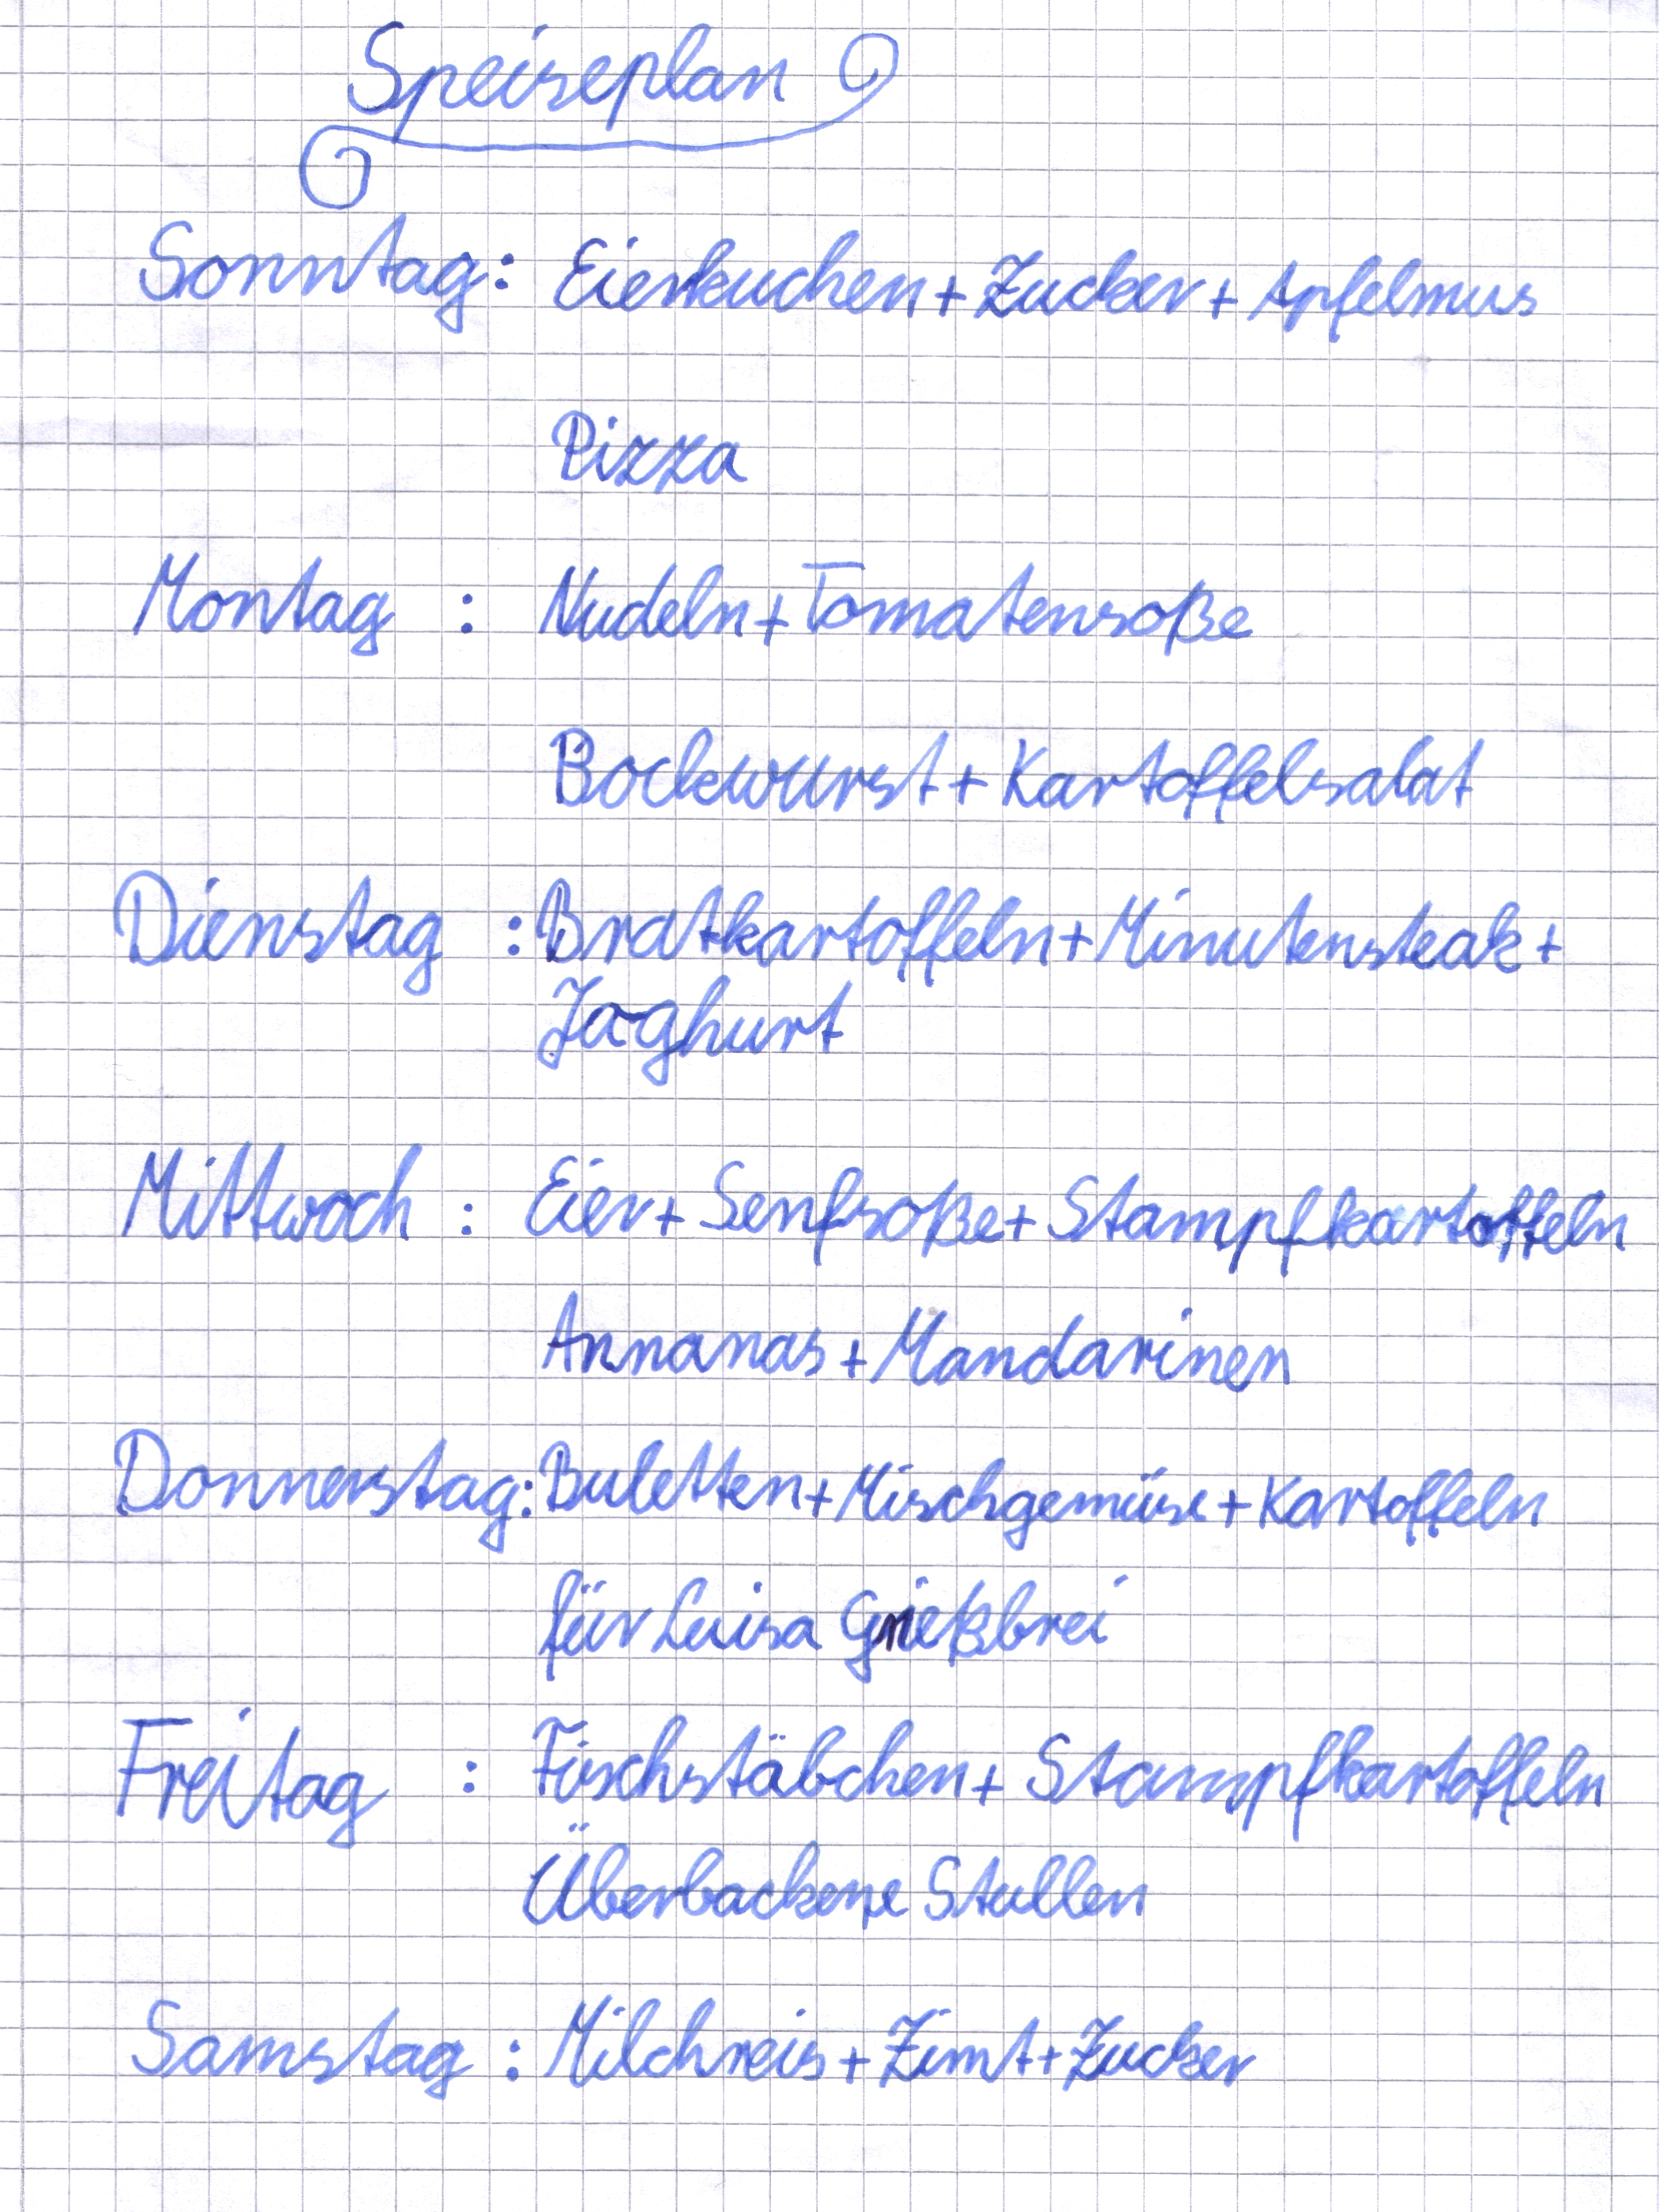 Speiseplan
Sonntag: Eierkuchen + Zucker + Apfelmus
Pizza
Montag : Nudeln + Tomatensoße
Bockwurst + Kartoffelsalat
Dienstag : Bratkartoffeln + Minutensteak +
Joghurt
Mittwoch : Eier + Senfsoße + Stampfkartoffeln
Annanas + Mandarinen
Donnerstag: Buletten + Mischgemüse + Kartoffeln
für Luisa Grießbrei
Freitag : Fischstäbchen + Stampfkartoffeln
Überbackene Stullen
Samstag : Milchreis + Zimt + Zucker